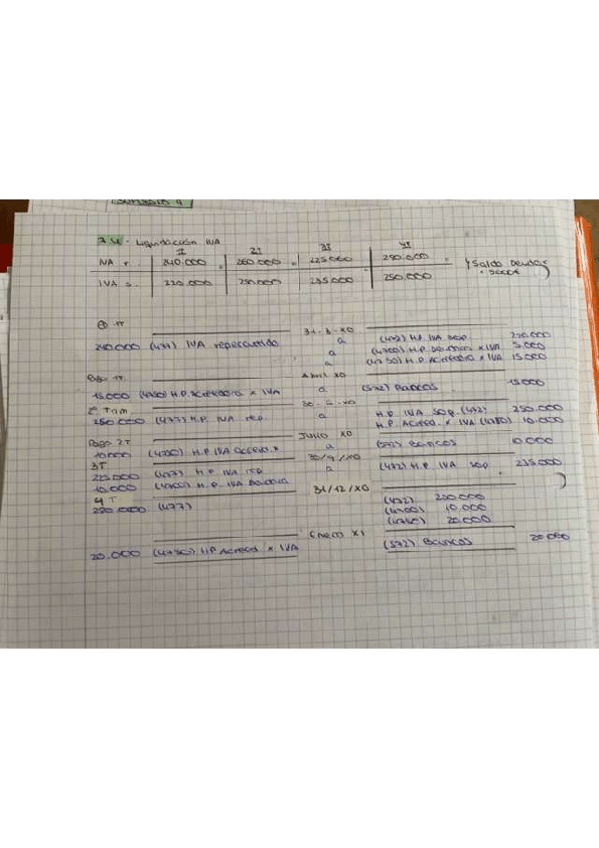 7.4 - Liquidación IVA
1T 2T 3T 4T
IVA r. 240.000 260.000 225.000 280.000 Saldo Deudor
IVA s. 220.000 250.000 235.000 250.000 5000€
① 1T 31-3-X0
240.000 (477) IVA repercutido a (472) H.P. IVA sop. 220.000
a (4700) H.P. Deudora x IVA 5.000
a (4750) H.P. Acreedora x IVA 15.000
Pago 1T. Abril X0
15.000 (4750) H.P. Acreedora x IVA a (572) Bancos 15.000
2º Trim 30-6-X0
260.000 (477) H.P. IVA rep. a H.P. IVA sop. (472) 250.000
H.P. Acreed. x IVA (4750) 10.000
Pago 2T Julio X0
10.000 (4750) H.P IVA acreed. a (572) Bancos 10.000
3T 30/9/X0
225.000 (477) H.P. IVA rep a (472) H.P. IVA sop 235.000
10.000 (4700) H.P. IVA Deudora
4T 31/12/X0
280.000 (477) (472) 250.000
(4700) 10.000
(4750) 20.000
Enero X1
20.000 (4750) H.P Acreed x IVA (572) Bancos 20.000